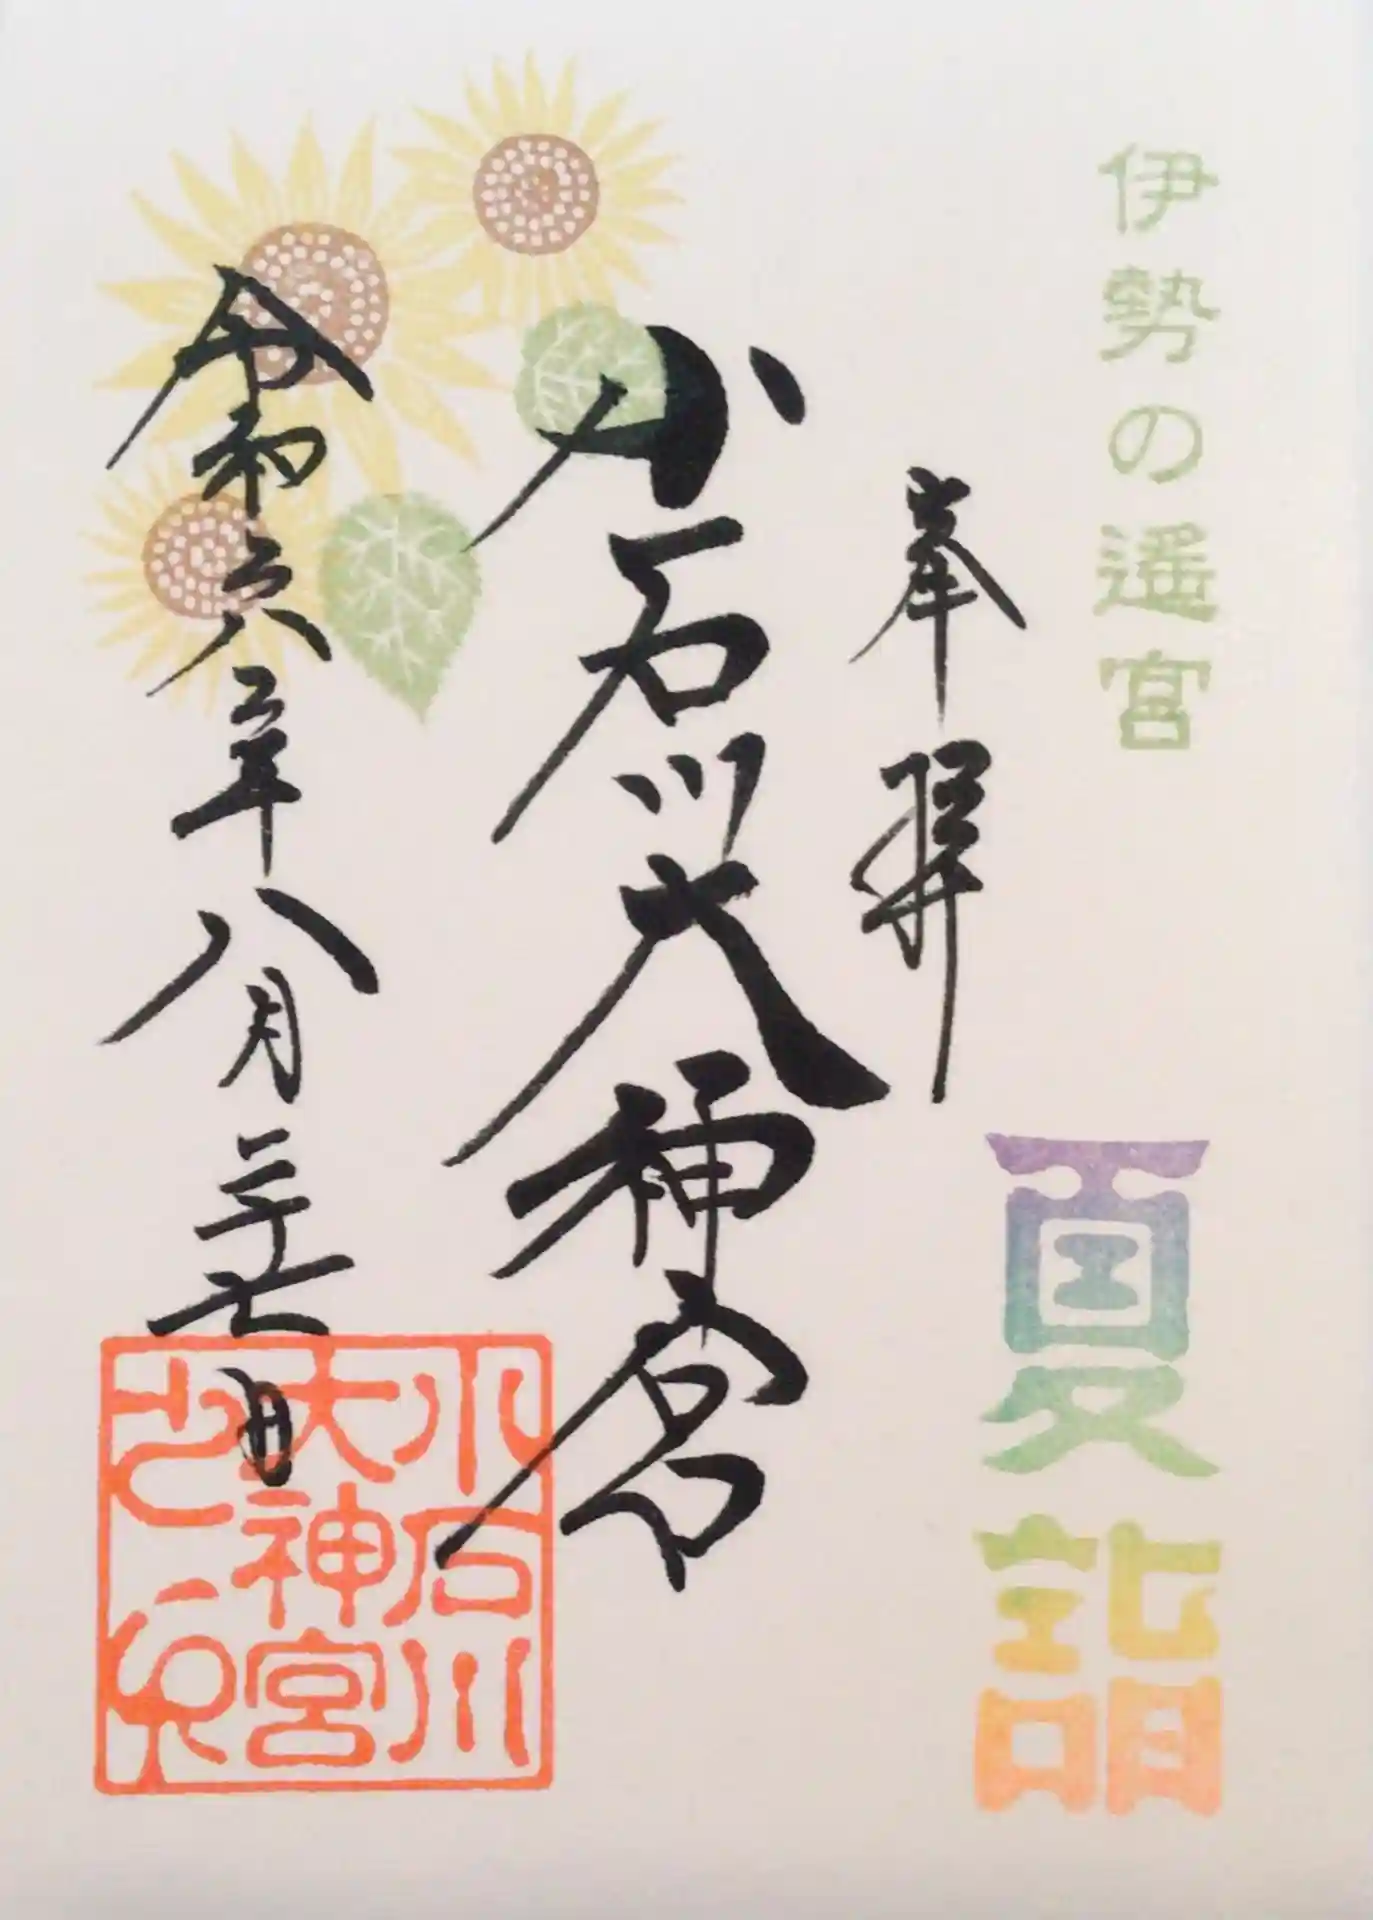 伊勢の遙宮
夏詣
奉拝
小石川大神宮
令和六年八月二十七日
小石川
大神宮
之印